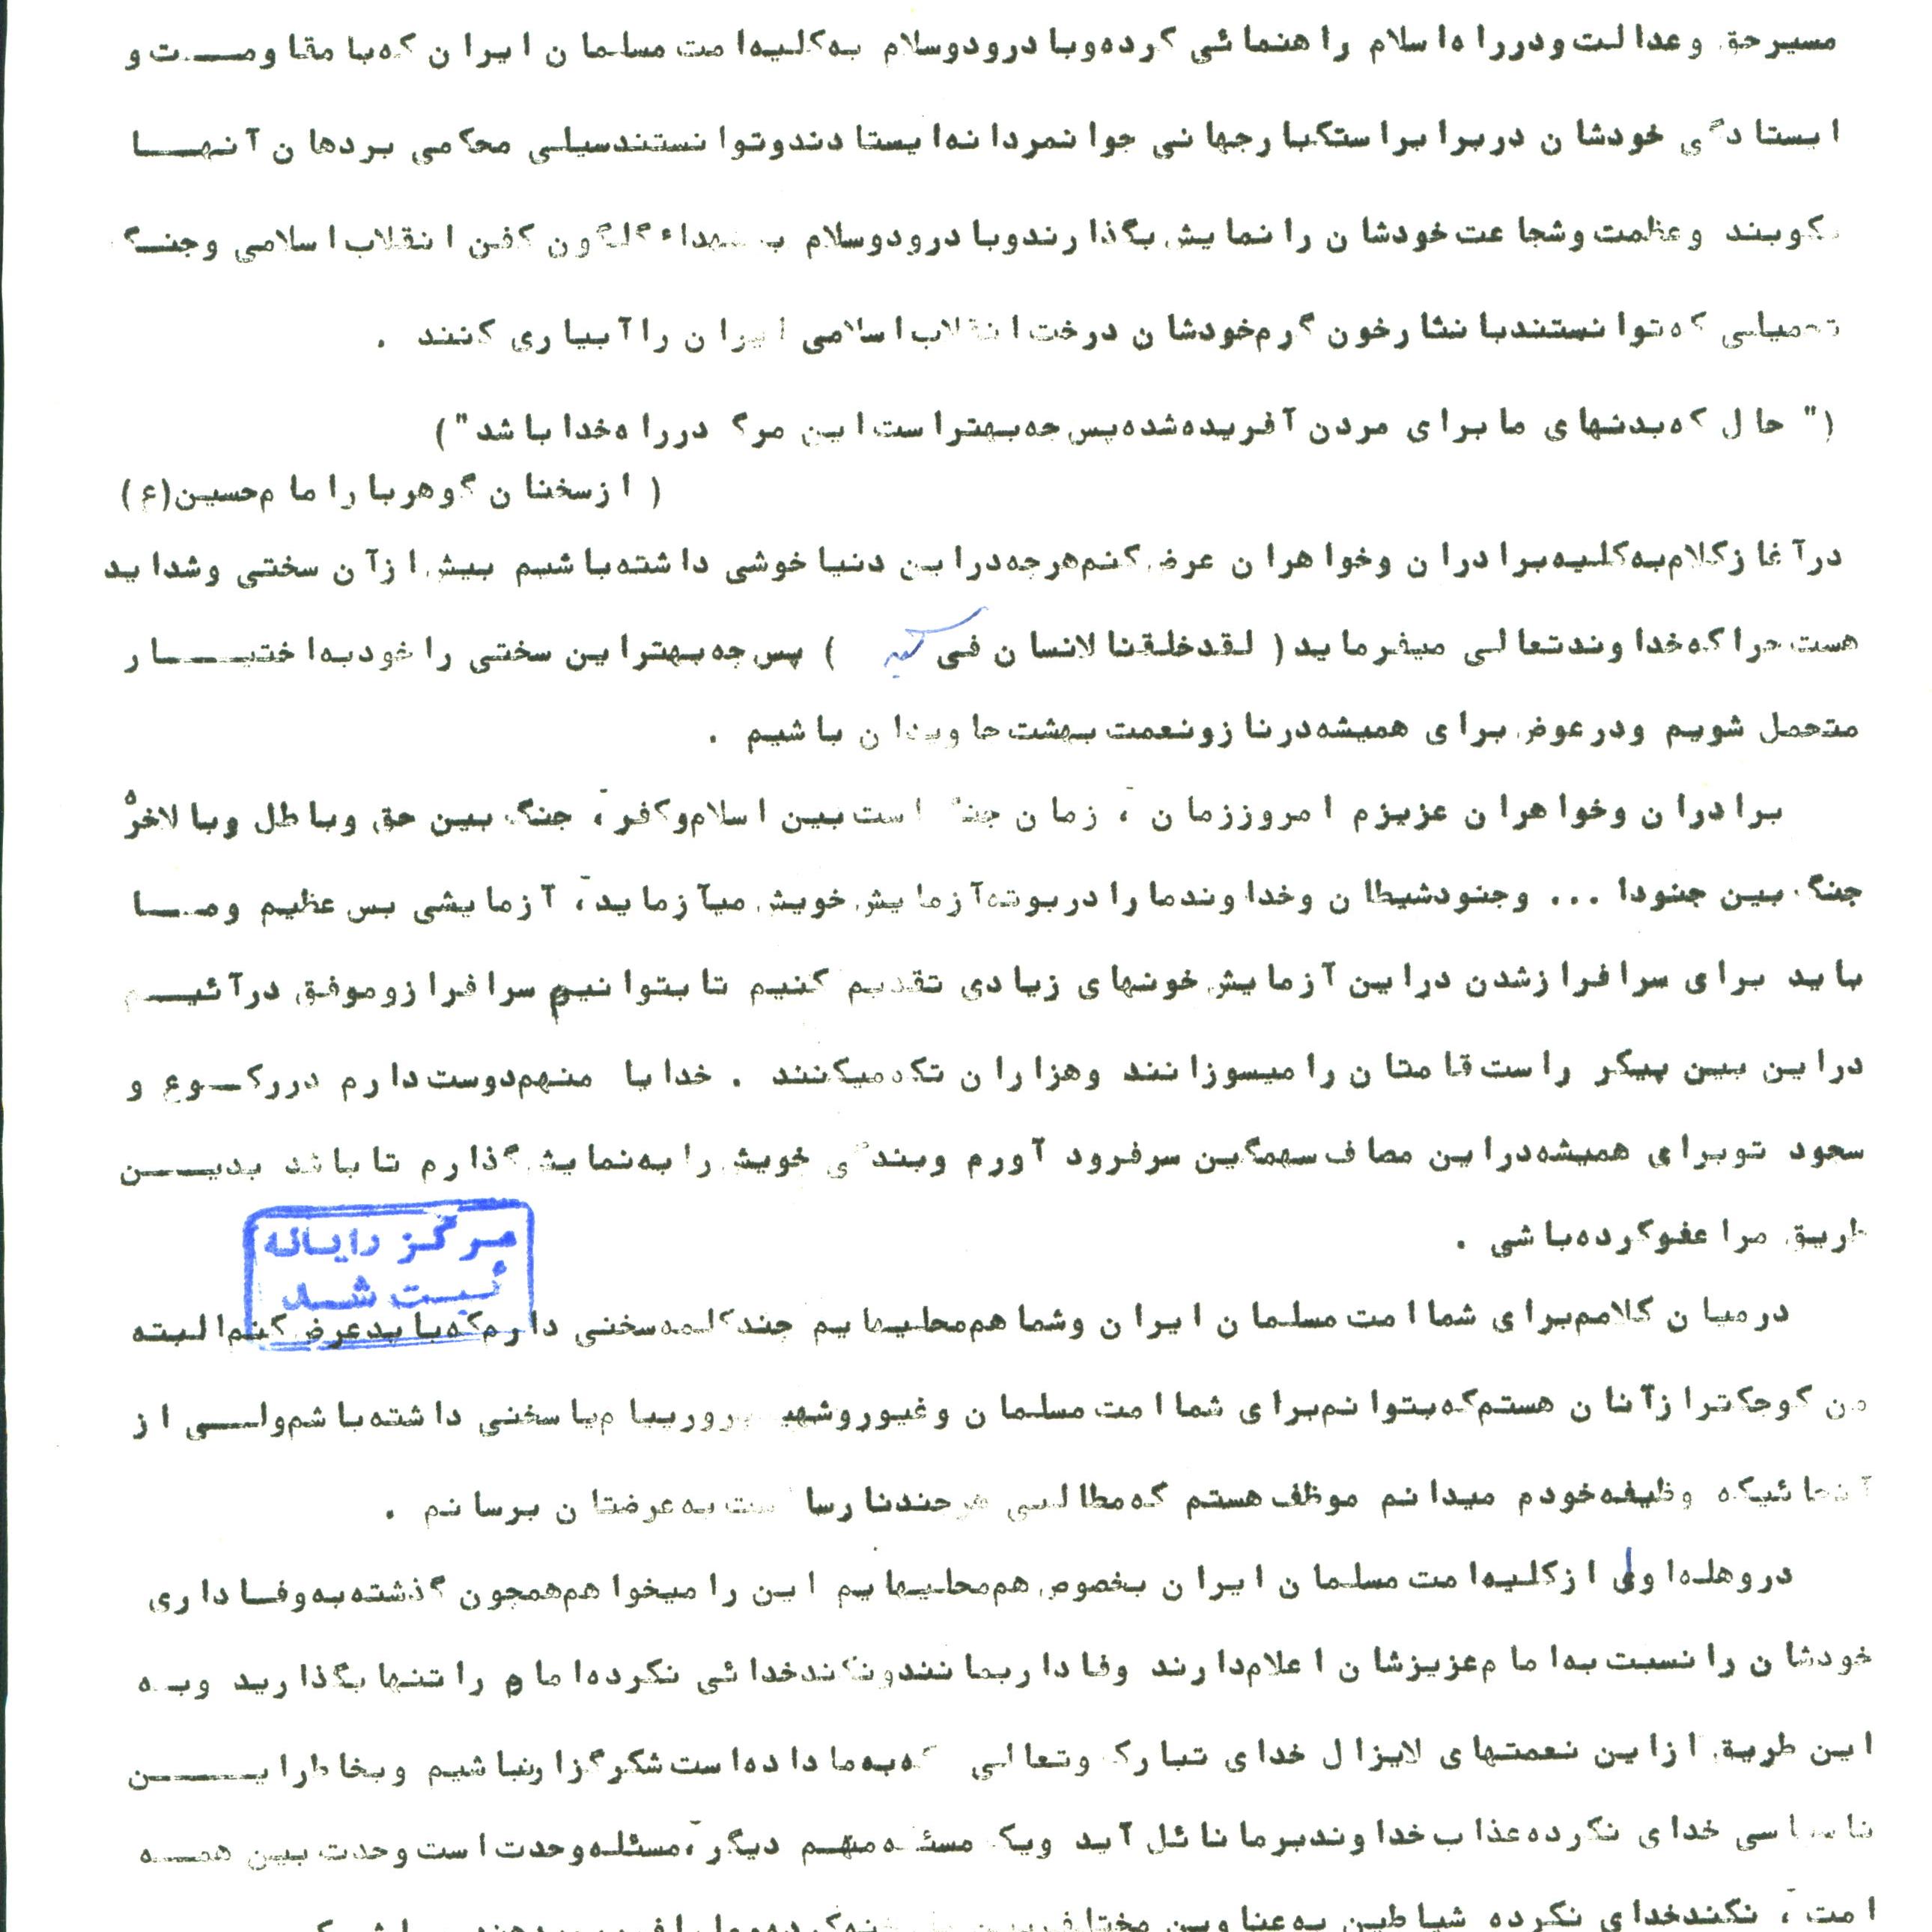 مسیر حق و عدالت و در راه اسلام راهنمائی کرده و با درود و سلام به کلیه امت مسلمان ایران که با مقاومت و
ایستادگی خودشان در برابر استکبار جهانی جوانمردانه ایستادند و توانستند سیلی محکمی بر دهان آنها
بکوبند و عظمت و شجاعت خودشان را نمایش بگذارند و با درود و سلام به شهداء گلگون کفن انقلاب اسلامی و جنگ
تحمیلی که توانستند با نثار خون گرم خودشان درخت انقلاب اسلامی ایران را آبیاری کنند .
(" حال که بدنهای ما برای مردن آفریده شده پس چه بهتر است این مرگ در راه خدا باشد")
( از سخنان گوهربار امام حسین(ع)
در آغاز کلام به کلیه برادران و خواهران عرض کنم هر چه در این دنیا خوشی داشته باشیم بیش از آن سختی و شداید
هست چرا که خداوند تعالی میفرماید ( لقد خلقنا لانسان فی کبد ) پس چه بهتر این سختی را خود به اختیار
متحمل شویم و در عوض برای همیشه در ناز و نعمت بهشت جاویدان باشیم .
برادران و خواهران عزیزم امروز زمان ، زمان جنگ است بین اسلام و کفر ، جنگ بین حق و باطل و بالاخره
جنگ بین جنودا ... و جنود شیطان و خداوند ما را در بوته آزمایش خویش میآزماید ، آزمایشی بس عظیم و ما
باید برای سرافراز شدن در این آزمایش خونهای زیادی تقدیم کنیم تا بتوانیم سرافراز و موفق درآئیم
در این بین پیکر راست قامتان را میسوزانند و هزاران تکه میکنند . خدایا منهم دوست دارم در رکوع و
سجود تو برای همیشه در این مصاف سهمگین سر فرود آورم و بندگی خویش را به نمایش گذارم تا باشد بدین
طریق مرا عفو کرده باشی .
مرکز رایانه
ثبت شد
در میان کلامم برای شما امت مسلمان ایران و شما هم محلیهایم چند کلمه سخنی دارم که باید عرض کنم البته
من کوچکتر از آنان هستم که بتوانم برای شما امت مسلمان و غیور و شهید پرور پیام یا سخنی داشته باشم ولی از
آنجائیکه وظیفه خودم میدانم موظف هستم که مطالبی هر چند نارسا است به عرضتان برسانم .
در وهله اول از کلیه امت مسلمان ایران بخصوص هم محلیهایم این را میخواهم همچون گذشته به وفاداری
خودشان را نسبت به امام عزیزشان اعلام دارند وفادار بمانند و نکند خدائی نکرده امام را تنها بگذارید و به
این طریق از این نعمتهای لایزال خدای تبارک و تعالی که به ما داده است شکرگزار نباشیم و بخاطر این
ناسپاسی خدای نکرده عذاب خداوند بر ما نائل آید و یک مسئله مهم دیگر ، مسئله وحدت است وحدت بین همه
امت ، نکند خدای نکرده شیاطین به عناوین مختلف بین